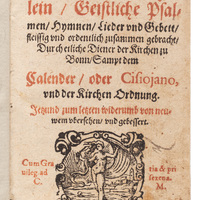 lein / Geistliche Psal-
men / Hymnen / Lieder vnd Gebett /
fleissig vnd ordentlich zusammen gebracht /
Durch etliche Diener der Kirchen zu
Bonn / Sampt dem
Calender / oder Cisiojano,
vnd der Kirchen Ordnung.
Jetzund zum letzten widerumb von neu-
wem vbersehen / vnd gebessert.
Cum Gra
C.
tia & pri
M.